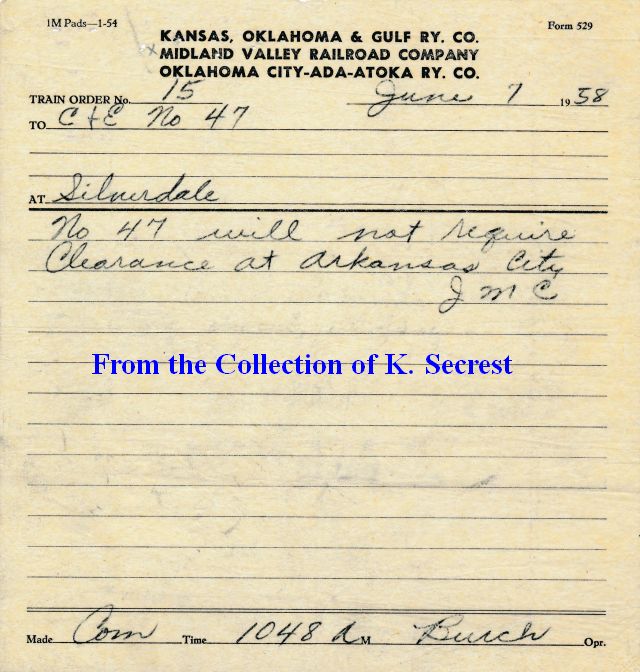 1M Pads—1-54 Form 529
KANSAS, OKLAHOMA & GULF RY. CO.
MIDLAND VALLEY RAILROAD COMPANY
OKLAHOMA CITY-ADA-ATOKA RY. CO.
TRAIN ORDER No. 15 June 7 1958
TO C & E No 47
AT Silverdale
No 47 will not require
Clearance at Arkansas City
J M C
From the Collection of K. Secrest
Made Com Time 1048 A M Burch Opr.